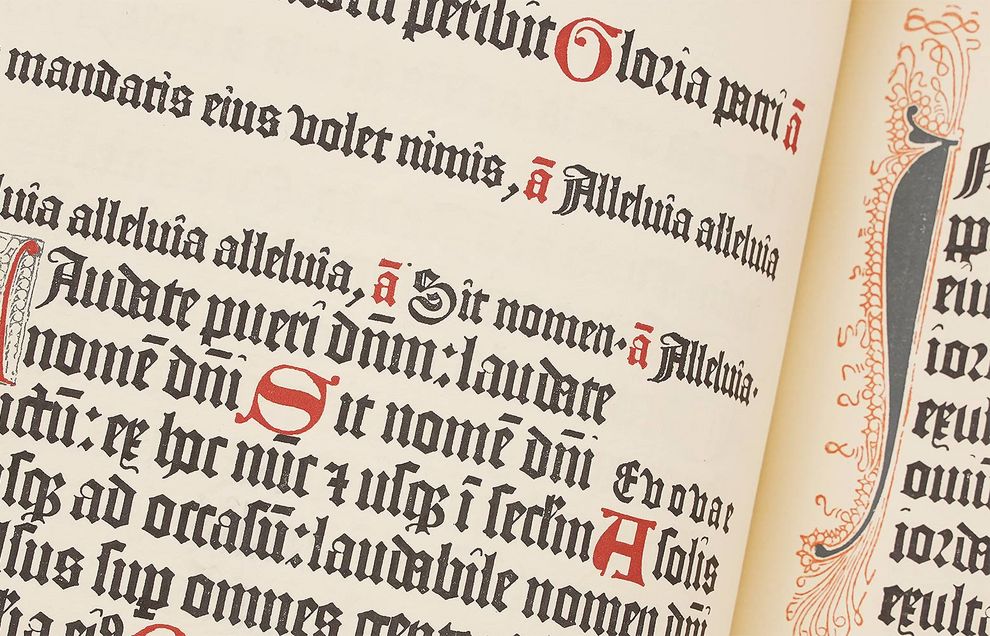 peribit Gloria patri ā
mandatis eius volet nimis, ā Alleluia alleluia
luia alleluia alleluia, ā Sit nomen· ā Alleluia·
Audate pueri dn̄m: laudate
nomē dn̄i Sit nomē dn̄i Evovae
ctū: ex hoc nūc ⁊ usqꝫ ī sec̄lm A solis
usqꝫ ad occasū: laudabile nomen dn̄i
sus sup omnes
eiꝰ
I
eiu
ior
exul
iorda
exult